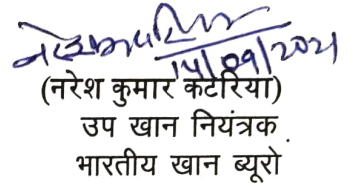 14/09/2021
(नरेश कुमार कटेरिया)
उप खान नियंत्रक
भारतीय खान ब्यूरो